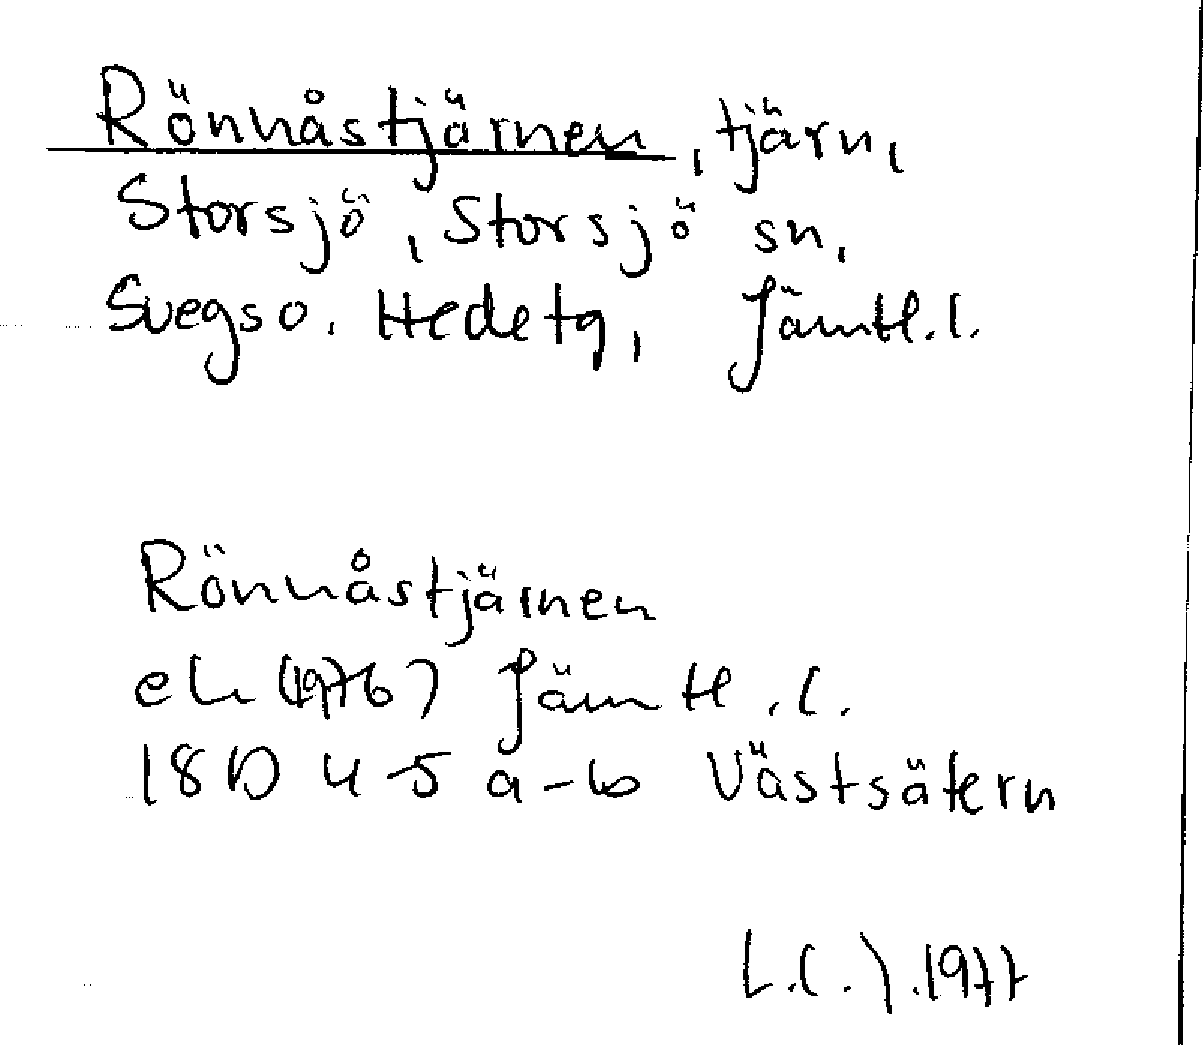 Rönnåstjärnen, tjärn,
Storsjö, Storsjö sn,
Svegs o. Hede tg, Jämtl.l.
Rönnåstjärnen
ek (1976) Jämtl.l.
18D 4-5 a-b Västsätern
1977